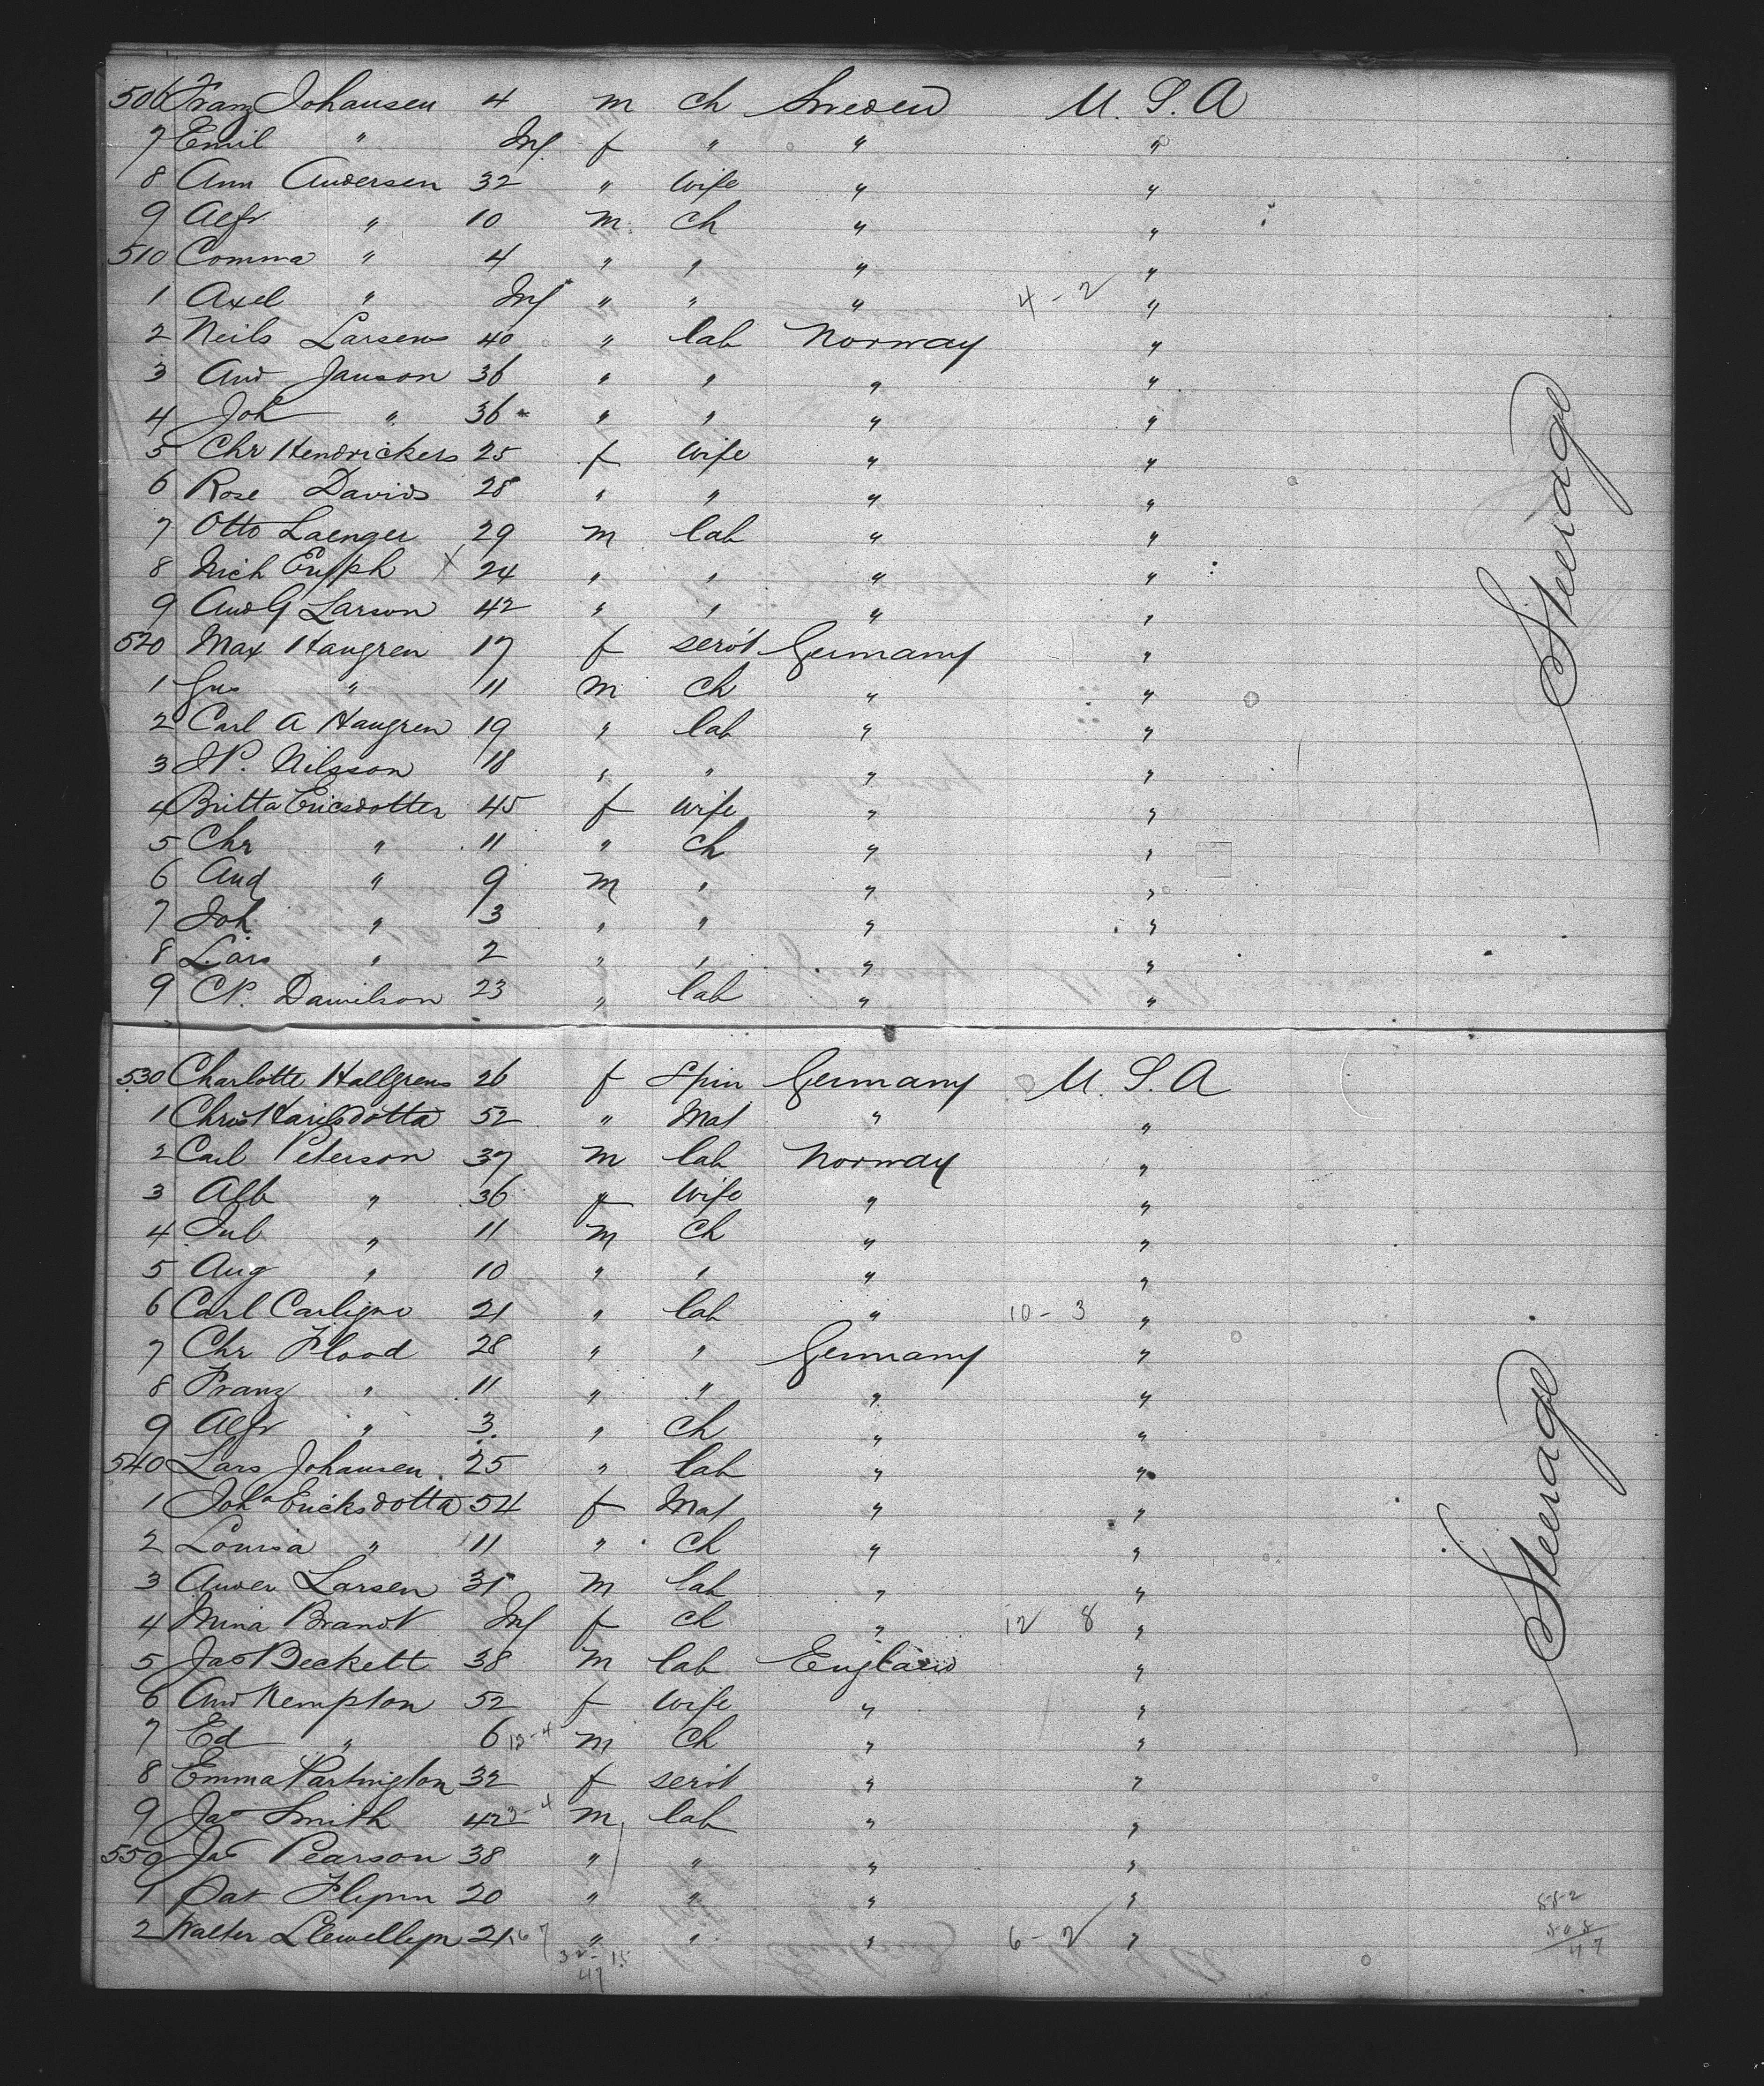 506 Franz Johansen 4 m ch Sweden U. S. A
7 Emil " Inf. f " " "
8 Ann Andersen 32 " wife " "
9 Alfr " 10 m ch " "
510 Comma " 4 " " " "
1 Axel " Inf " " " 4-2 "
2 Neils Larsens 40 " lab Norway "
3 And Janson 36 " " " "
4 Joh " 36 " " " "
5 Chr Hendrickers 25 f wife " "
6 Rose Davids 28 " " " "
7 Otto Laenger 29 m lab " "
8 Mich x 24 " " " "
9 And G Larson 42 " " " "
520 Max Haugren 17 f servt Germany "
1 Gus " 11 m ch " "
2 Carl A Haugren 19 " lab " "
3 J P. Nilsson 18 " " " "
4 Britta Ericsdotter 45 f wife " "
5 Chr " 11 " ch " "
6 And " 9 m " " "
7 Joh " 3 " " " "
8 Lars " 2 " " " "
9 C P. Danielson 23 " lab " "
Steerage
530 Charlotte Hallgrens 26 f Spin Germany U. S. A
1 Chris 52 " Mat " "
2 Carl Peterson 37 m lab Norway "
3 Alb " 36 f wife " "
4 Jul " 11 m ch " "
5 Aug " 10 " " " "
6 Carl 21 " lab " 10-3 "
7 Chr Flood 28 " " Germany "
8 Franz " 11 " " " "
9 Alfr " 3 " ch " "
540 Lars Johansen 25 " lab " "
1 Joha Ericksdotta 54 f Mat " "
2 Louisa " 11 " ch " "
3 Ander Larsen 31 m lab " "
4 Mina Brandt Inf f ch " 12 8 "
5 Jas Beckett 38 m lab England "
6 And Kempton 52 f wife " "
7 Ed " 6 13-4 m ch " "
8 Emma Partington 32 f servt " "
9 Jas Smith 42 3-4 m lab " "
550 Jas Pearson 38 " " " "
1 Pat Flynn 20 " " " "
2 Walter Llewellyn 21 67 " " " 6-2 "
32-15
47
Steerage
552
505
47